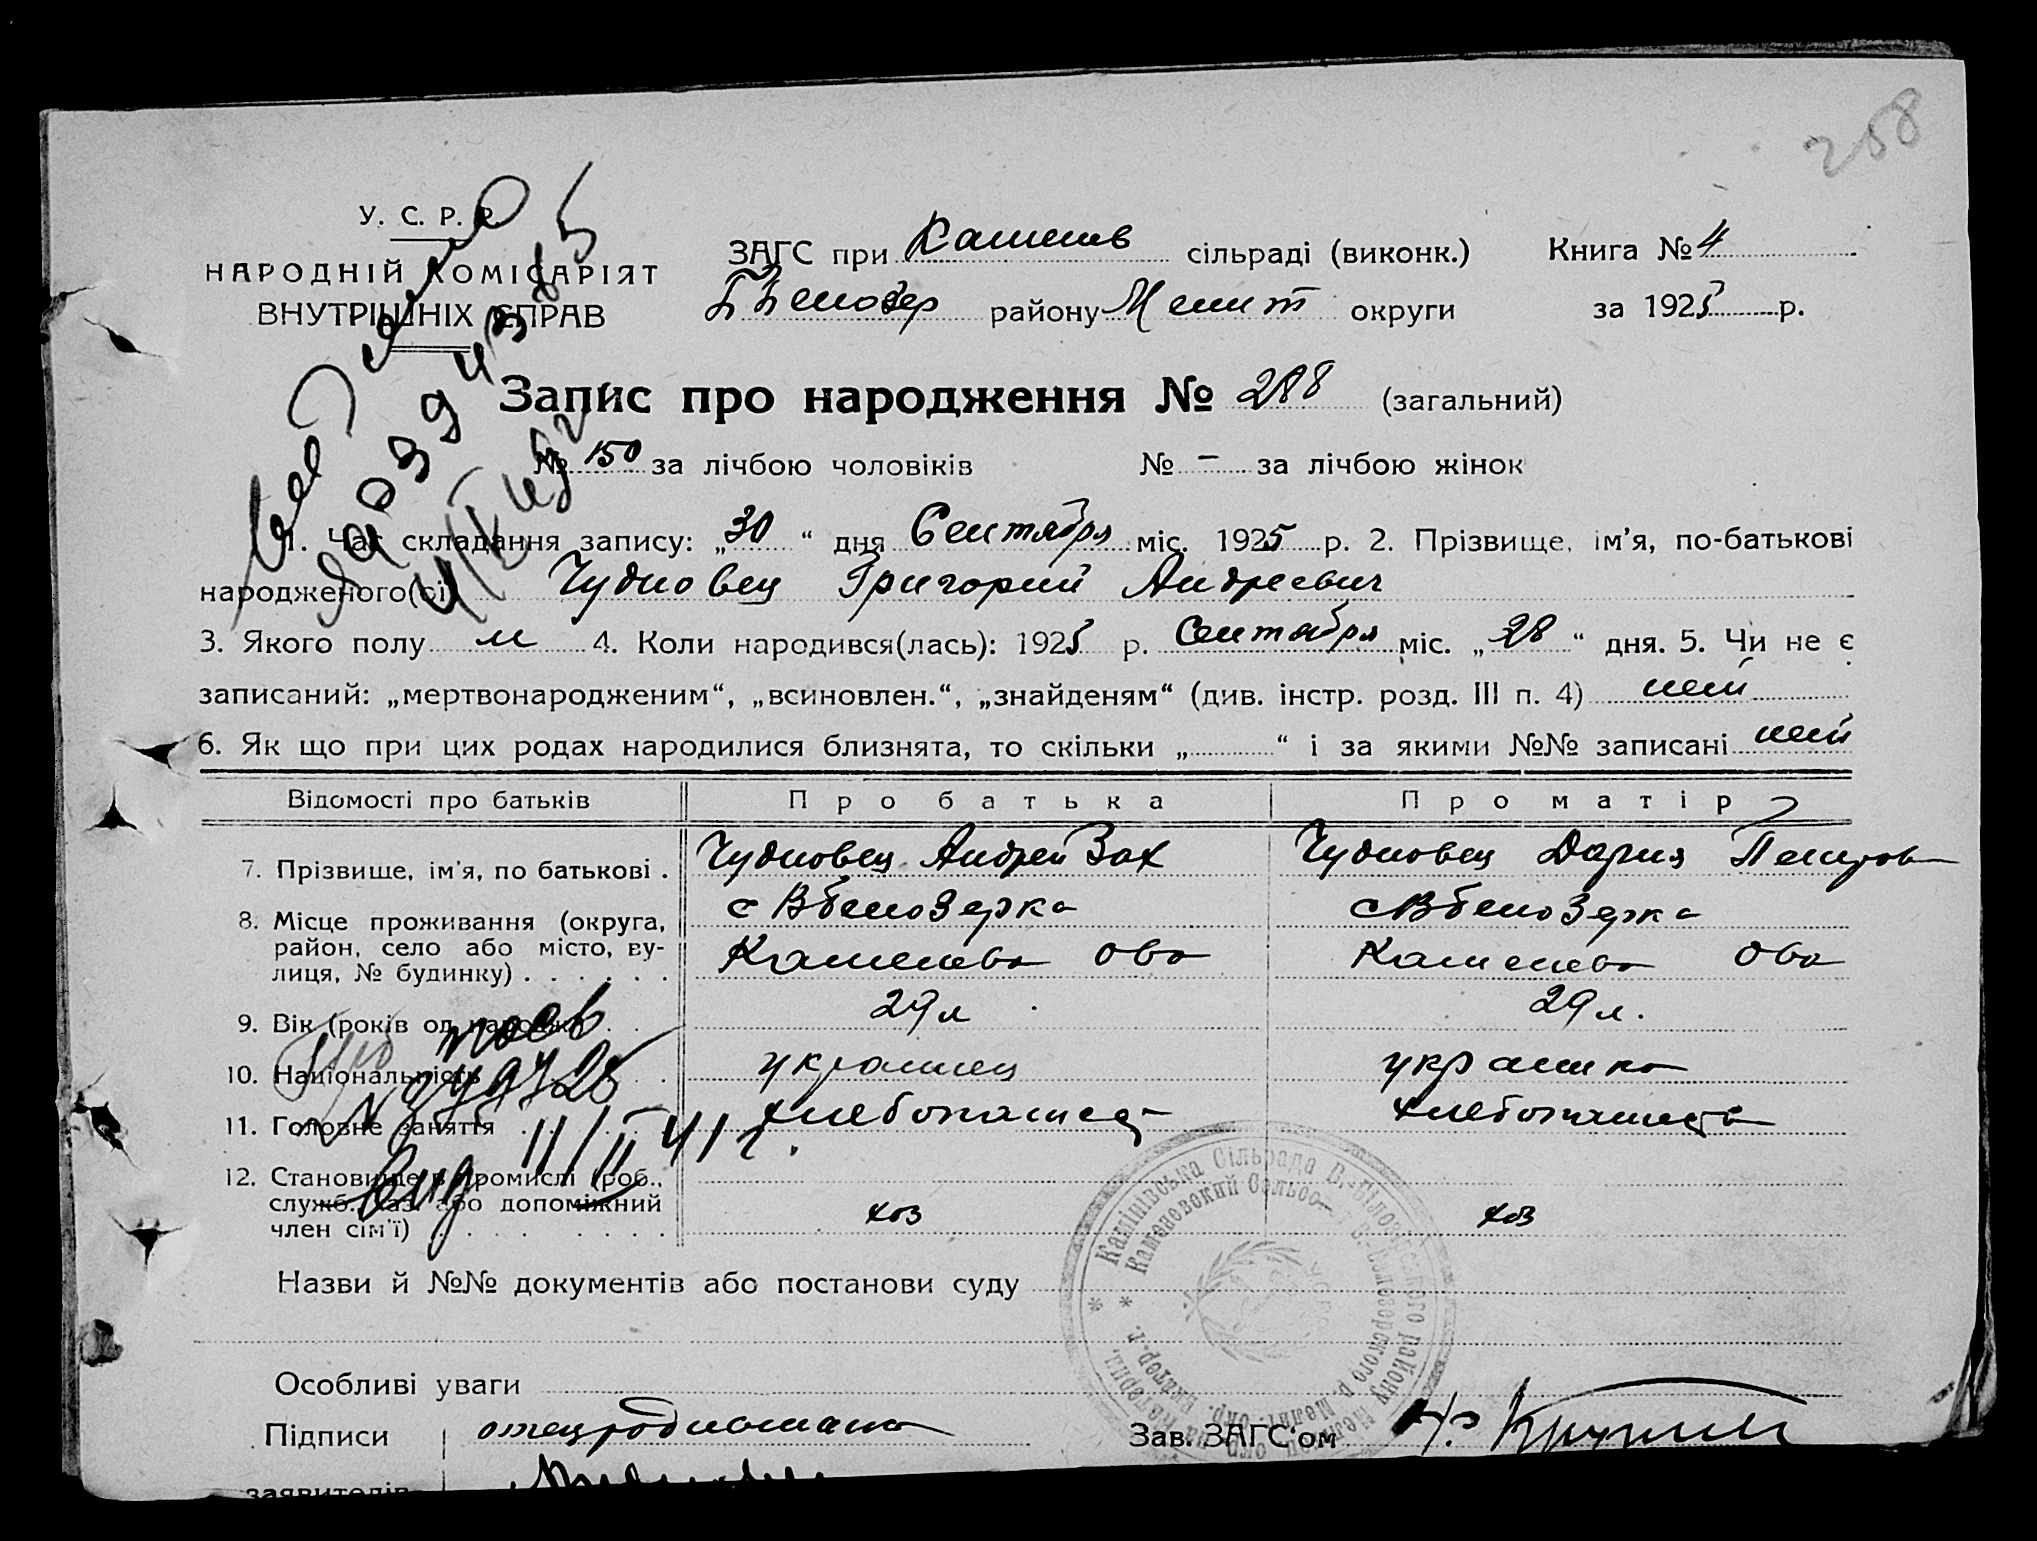 258
У. С. Р. Р.
НАРОДНІЙ КОМІСАРІЯТ
ВНУТРІШНІХ СПРАВ
ЗАГС при Каменев сільраді (виконк.) Книга № 4
ББелозер району Мелит округи за 1925 р.
Запис про народження № 288 (загальний)
№ 150 за лічбою чоловіків № – за лічбою жінок
1. Час складання запису: „30“ дня Сентября міс. 1925 р. 2. Прізвище, ім'я, по-батькові
народженого(ої) Чудновец Григорий Андреевич
3. Якого полу м 4. Коли народився(лась): 1925 р. Сентября міс. „28“ дня. 5. Чи не є
записаний: „мертвонародженим“, „всиновлен.“, „знайденям“ (див. інстр. розд. III п. 4) нет
6. Як що при цих родах народилися близнята, то скільки „ “ і за якими №№ записані нет
Відомості про батьків Про батька Про матір
7. Прізвище, ім'я, по батькові . Чудновец Андрей Зах Чудновец Дария Петров
8. Місце проживання (округа, с Вбелозерка с Вбелозерка
район, село або місто, ву-
лиця, № будинку) . . . . . . Каменева Ова Каменева Ова
9. Вік (років од народж.) . . 29 л 29 л.
10. Національність украинец украинка
11. Головне заняття хлебопашец хлебопашеца
12. Становище в промислі (роб.,
служб., хаз. або допоміжний
член сім'ї) хоз хоз
№ 249725
11/II 41 г.
Назви й №№ документів або постанови суду
Камінівська Сільрада В.-Білозерського району
Каменевский Сельсо
Особливі уваги
Підписи отец родиошана
Зав. ЗАГС'ом
заявителів